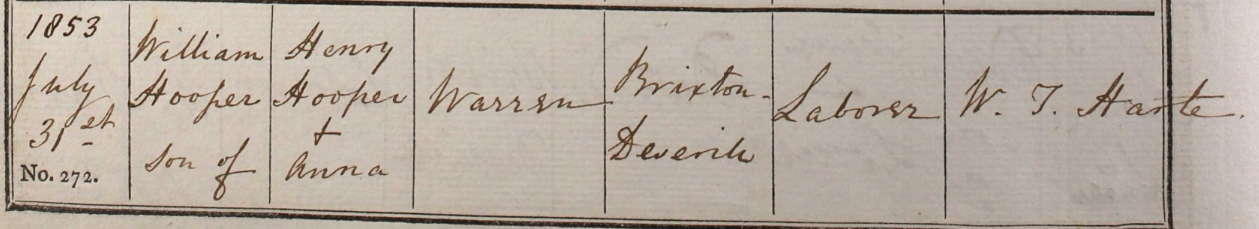 1853
July
31st
No. 272.
William
Hooper
son of
Henry
Hooper
+
Anna
Warren
Brixton-
Deverile
Laborer
W. T. Harte.